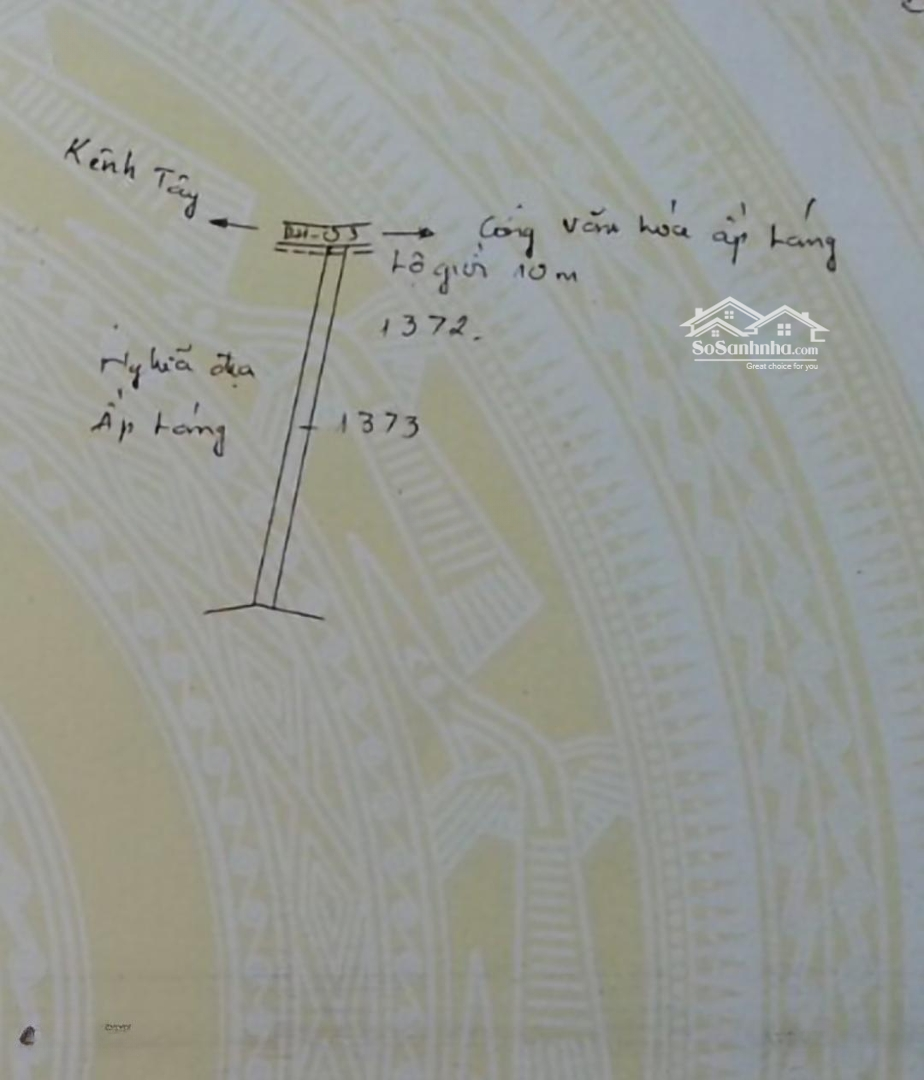 Kênh Tây
Cổng văn hóa ấp Láng
Lộ giới 10m
1372.
SoSanhnha.com
Great choice for you
Nghĩa địa
Ấp Láng
1373